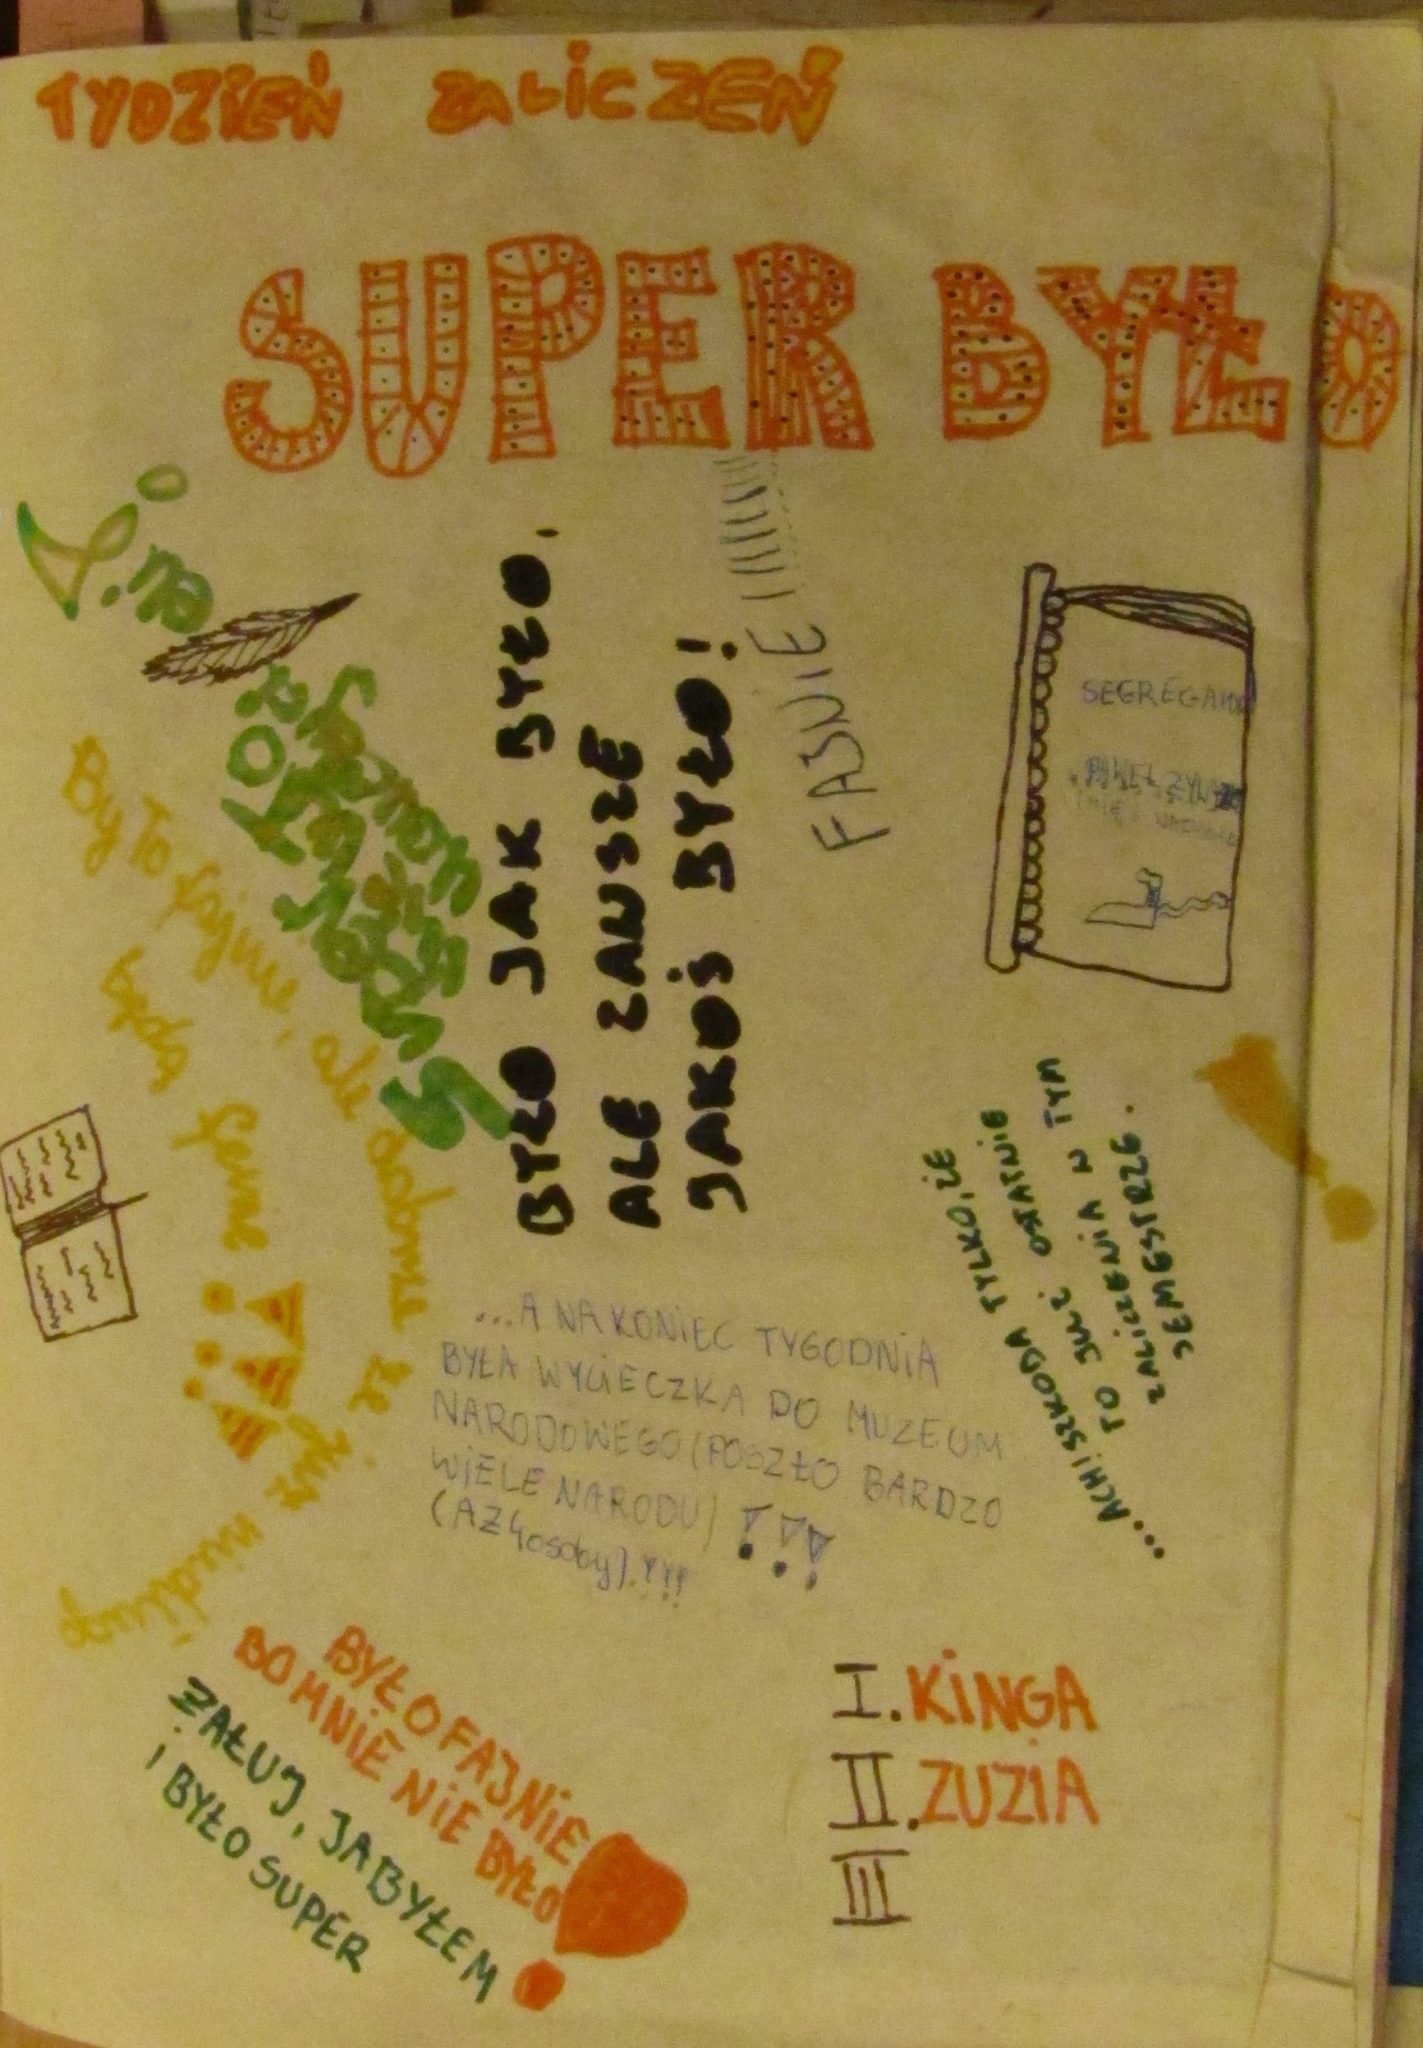 TYDZIEŃ ZALICZEŃ
SUPER BYŁO
BYŁO JAK BYŁO,
ALE ZAWSZE
JAKOŚ BYŁO!
FAJNIE!!!!!!!!!
By To fajnie, ale dobrze że już
będą ferie !!!
SEGREGATOR
imię i nazwisko
...ACH! SZKODA TYLKO, ŻE
TO JUŻ OSTATNIE
ZALICZENIA W TYM
SEMESTRZE.
...A NA KONIEC TYGODNIA
BYŁA WYCIECZKA DO MUZEUM
NARODOWEGO (POSZŁO BARDZO
WIELE NARODU) !!!
(AŻ 4 osoby).!!!
BYŁO FAJNIE
BO MNIE NIE BYŁO!
ŻAŁUJ, JA BYŁEM
I BYŁO SUPER
I. KINGA
II. ZUZIA
III